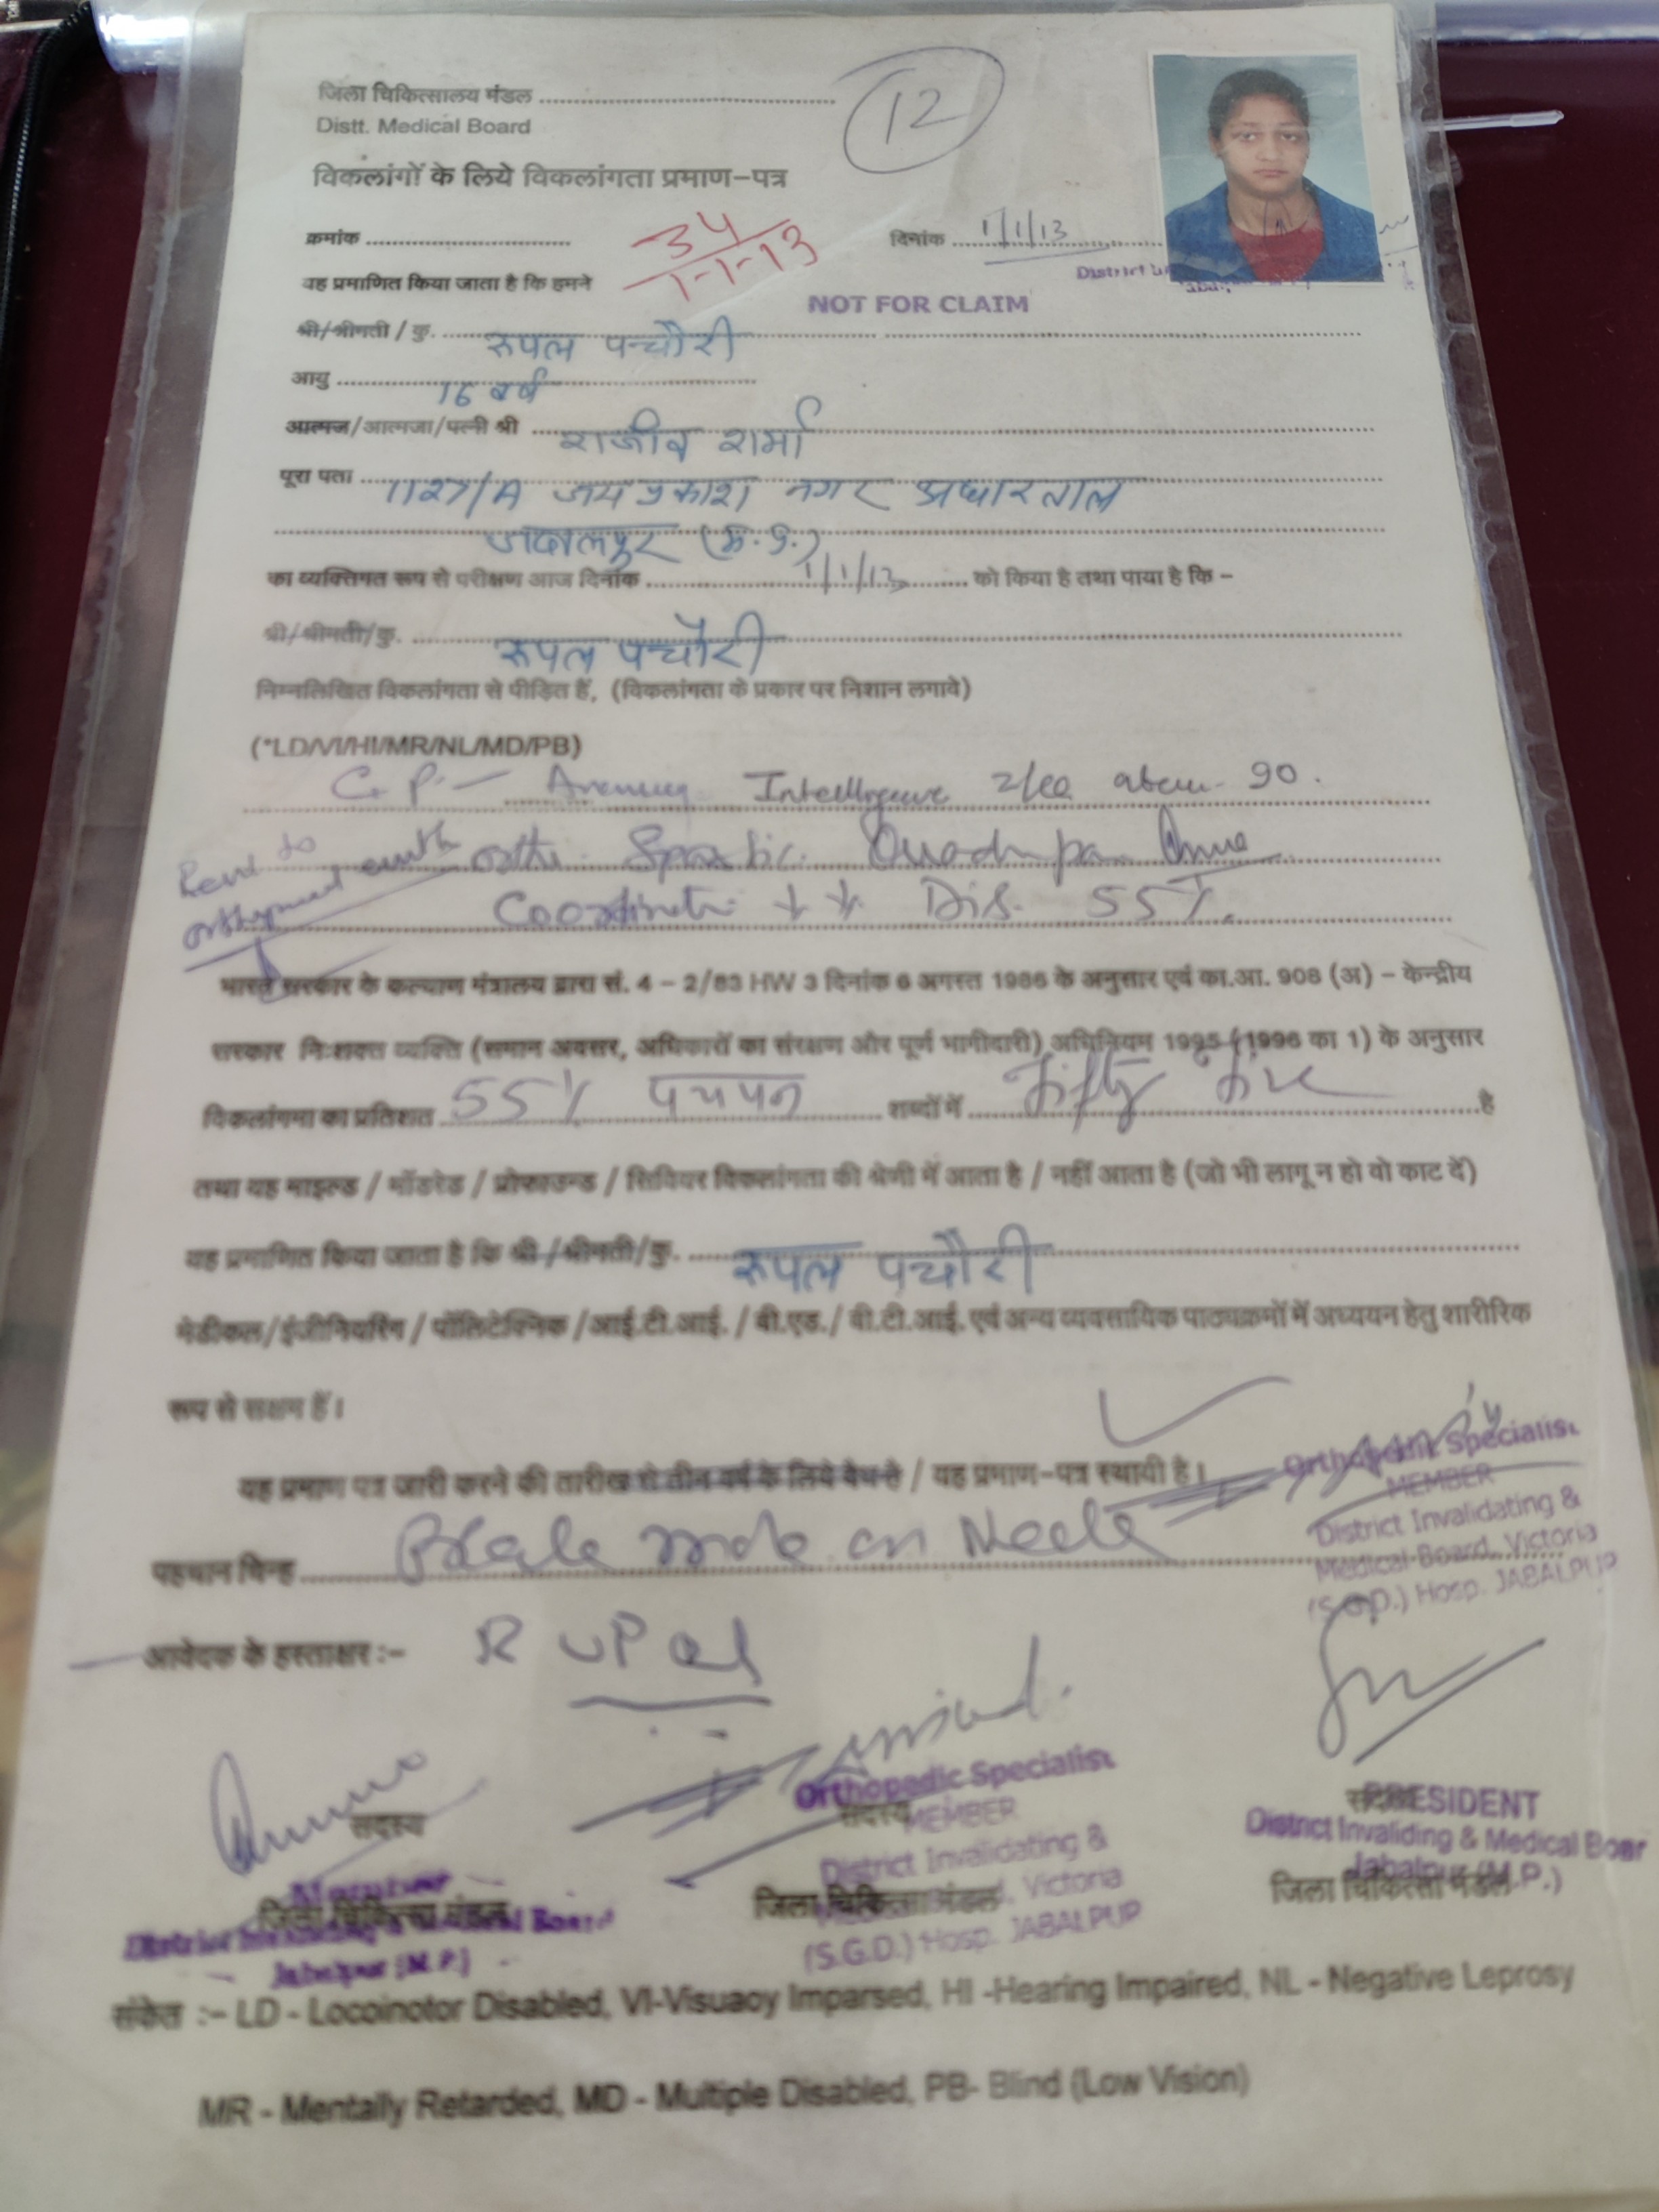 जिला चिकित्सालय मंडल
Distt. Medical Board
12
विकलांगों के लिये विकलांगता प्रमाण-पत्र
क्रमांक 34/1-1-13 दिनांक 1/1/13
यह प्रमाणित किया जाता है कि हमने
NOT FOR CLAIM
श्री/श्रीमती / कु. रूपल पचौरी
आयु 16 वर्ष
आत्मज/आत्मजा/पत्नी श्री राजीव शर्मा
पूरा पता 1127/A जय प्रकाश नगर अधारताल
जबलपुर (म.प्र.)
का व्यक्तिगत रूप से परीक्षण आज दिनांक 1/1/13 को किया है तथा पाया है कि -
श्री/श्रीमती/कु. रूपल पचौरी
निम्नलिखित विकलांगता से पीड़ित हैं, (विकलांगता के प्रकार पर निशान लगावे)
(*LD/VI/HI/MR/NL/MD/PB)
C.P. - Intelligence 90.
Spastic
Dis. 55%.
भारत सरकार के कल्याण मंत्रालय द्वारा सं. 4 - 2/83 HW 3 दिनांक 6 अगस्त 1986 के अनुसार एवं का.आ. 908 (अ) - केन्द्रीय
सरकार निःशक्त व्यक्ति (समान अवसर, अधिकारों का संरक्षण और पूर्ण भागीदारी) अधिनियम 1995 (1996 का 1) के अनुसार
विकलांगमा का प्रतिशत 55% पचपन शब्दों में fifty five है
तथा यह माइल्ड / मॉडरेड / प्रोफाउन्ड / सिवियर विकलांगता की श्रेणी में आता है / नहीं आता है (जो भी लागू न हो वो काट दें)
यह प्रमाणित किया जाता है कि श्री / श्रीमती/कु. रूपल पचौरी
मेडीकल/इंजीनियरिंग / पॉलिटेक्निक /आई.टी.आई. / बी.एड./ बी.टी.आई. एवं अन्य व्यवसायिक पाठ्यक्रमों में अध्ययन हेतु शारीरिक
रूप से सक्षम हैं।
यह प्रमाण पत्र जारी करने की तारीख से तीन वर्ष के लिये वैध है / यह प्रमाण-पत्र स्थायी है।
Orthopedic Specialist
MEMBER
District Invalidating &
Medical Board, Victoria
(S.G.D.) Hosp. JABALPUR
पहचान चिन्ह on Neck
आवेदक के हस्ताक्षर :- RUPAL
सदस्य
Member
जिला चिकित्सा मंडल
Jabalpur (M.P.)
Orthopedic Specialist
सदस्य
MEMBER
District Invalidating &
जिला चिकित्सा मंडल
Victoria
(S.G.D.) Hosp. JABALPUR
PRESIDENT
District Invaliding & Medical Boar
Jabalpur (M.P.)
जिला चिकित्सा मंडल
संकेत :- LD - Locoinotor Disabled, VI-Visuaoy Imparsed, HI -Hearing Impaired, NL - Negative Leprosy
MR - Mentally Retarded, MD - Multiple Disabled, PB- Blind (Low Vision)